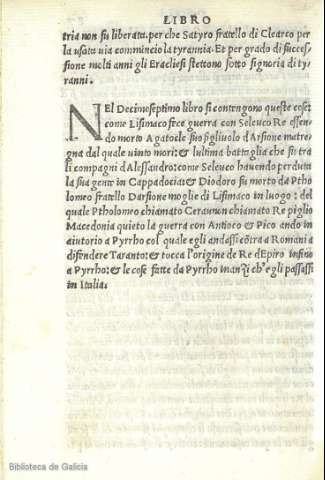 LIBRO
tria non fu liberata, per che Satyro fratello di Clearco per
la usata uia comincio la tyrannia. Et per grado di succes-
sione molti anni gli Eracliesi stettono sotto signoria di ty-
ranni.
NEl Decimoseptimo libro si contengono queste cose:
come Lisimaco fece guerra con Seleuco Re essen-
do morto Agatocle suo figliuolo d'Arsione matre-
gna dal quale uinto mori: & lultima battaglia che fu tra
li compagni d'Alessandro: come Seleuco hauendo perduta
la sua gente in Cappadocia: & Diodoro fu morto da Ptho
lomeo fratello Darsione moglie di Lisimaco in luogo: del
quale Ptholomeo chiamato Ceraunon chiamato Re piglio
Macedonia quieto la guerra con Antioco & Pico ando in
aiutorio a Pyrrho col quale egli andassi cōtra a Romani a
difendere Taranto: & tocca l'origine de Re dEpiro insino
a Pyrrho: & le cose fatte da Pyrrho inanzi ch'egli passassi
in Italia.
Biblioteca de Galicia